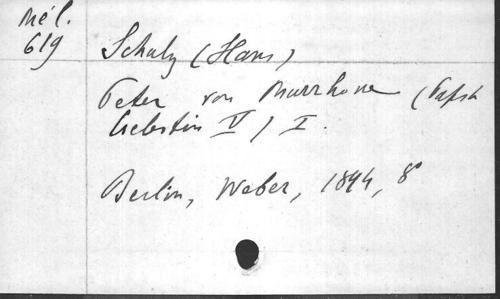 Mél.
619
Schulz (Hans)
Peter von Murrhone (Papst
Celestin V) I.
Berlin, Weber, 1894, 8°